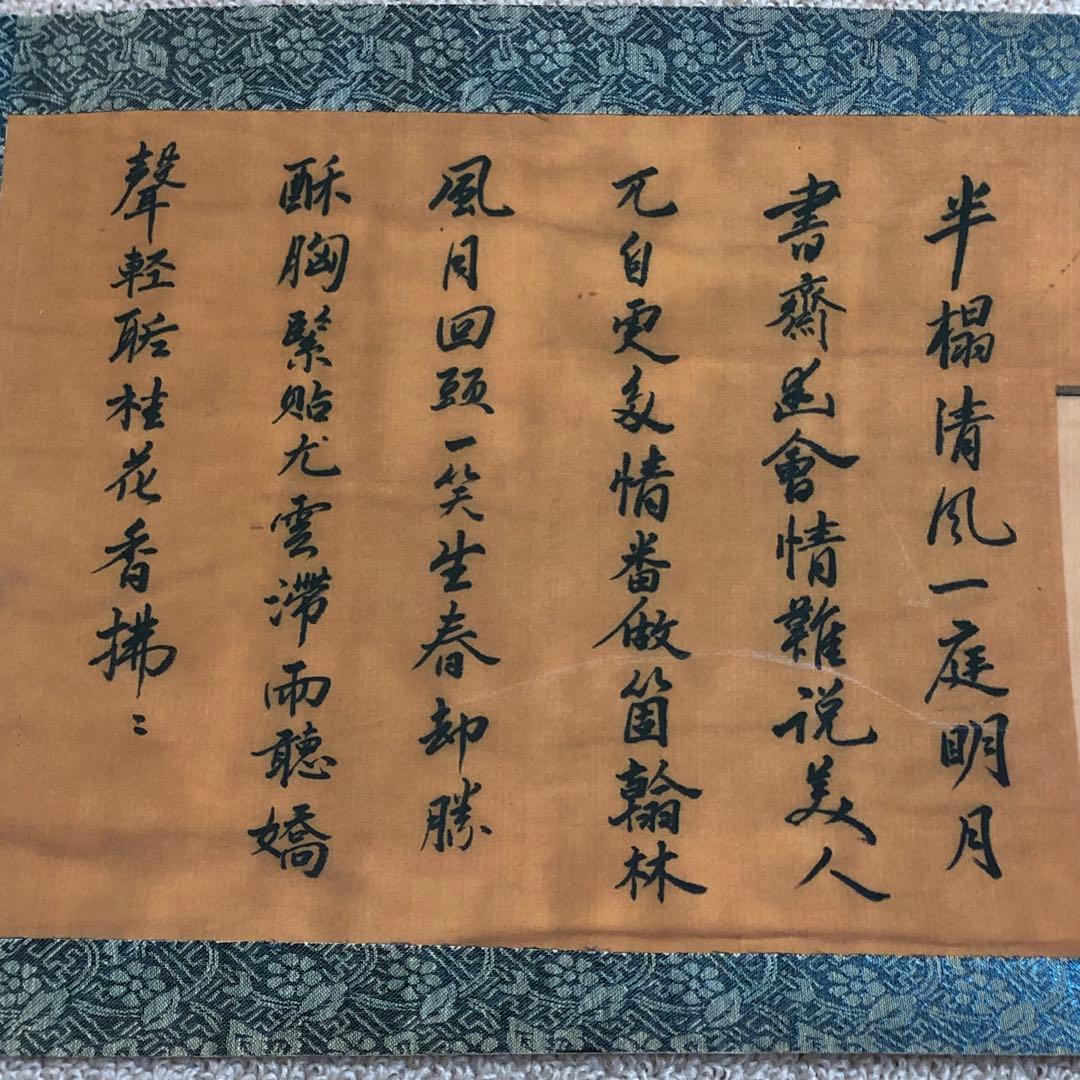 半榻清风一庭明月
書齋幽會情難说美人
兀自更多情番做箇翰林
風月回頭一笑生春却勝
酥胸緊贴尤雲滞雨聽嬌
聲軽聒桂花香拂〻